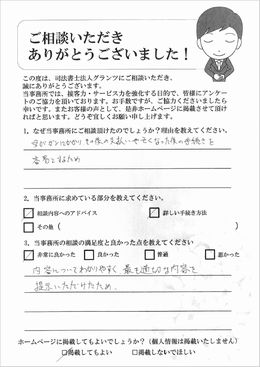 ご相談いただき
ありがとうございました！
この度は、司法書士法人グランツにご相談いただき、
誠にありがとうございます。
当事務所では、接客力・サービス力を強化する目的で、皆様にアンケー
トのご協力を頂いております。お手数ですが、ご協力くださいましたら
幸いです。またお客様の声として、是非ホームページに掲載させて頂け
ればと思います。どうぞ宜しくお願い申し上げます。
1. なぜ当事務所にご相談頂けたのでしょうか？理由を教えてください。
2. 当事務所に求めている部分を教えてください。
相談内容へのアドバイス
詳しい手続き方法
その他（ ）
3. 当事務所の相談の満足度と良かった点を教えてください
非常に良かった
良かった
普通
悪かった
内容についてわかりやすく、最も適切な内容を
提示いただけたため。
ホームページに掲載してもよいでしょうか？（個人情報は掲載いたしません）
□掲載してもよい □掲載しないでほしい